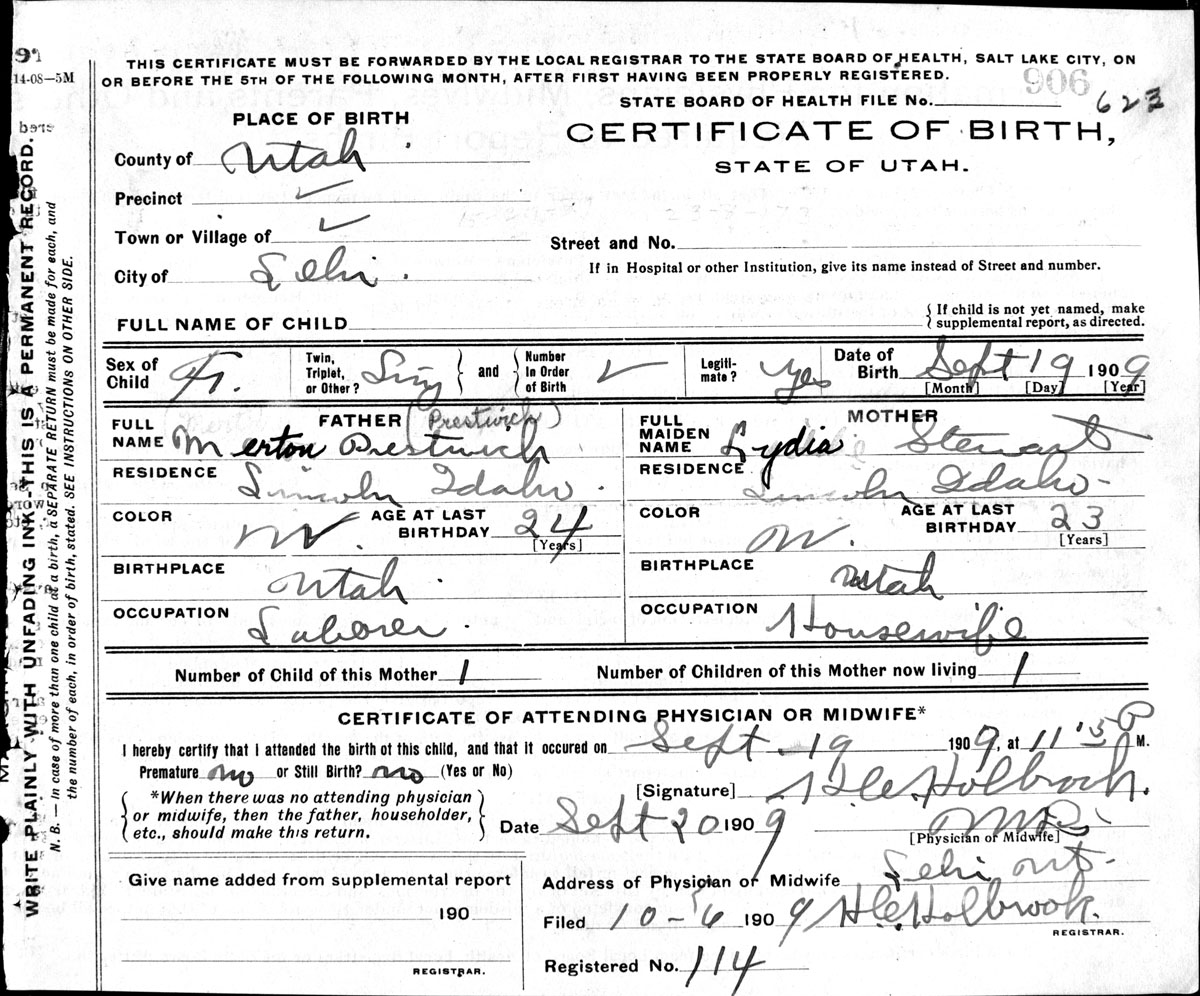 THIS CERTIFICATE MUST BE FORWARDED BY THE LOCAL REGISTRAR TO THE STATE BOARD OF HEALTH, SALT LAKE CITY, ON
OR BEFORE THE 5TH OF THE FOLLOWING MONTH, AFTER FIRST HAVING BEEN PROPERLY REGISTERED.
14-08—5M
STATE BOARD OF HEALTH FILE No. 623
PLACE OF BIRTH
CERTIFICATE OF BIRTH,
STATE OF UTAH.
County of Utah
Precinct ✓
Town or Village of ✓
Street and No.
City of Lehi.
If in Hospital or other Institution, give its name instead of Street and number.
FULL NAME OF CHILD
{If child is not yet named, make
supplemental report, as directed.
Sex of Child
Twin, Triplet, or Other? Sing } and { Number In Order of Birth ✓
Legiti-mate? Yes
Date of Birth Sept 19 1909
[Month] [Day] [Year]
FATHER (Prestwich)
FULL NAME Merton Prestwich
RESIDENCE Lincoln Idaho.
COLOR W. AGE AT LAST BIRTHDAY 24
[Years]
BIRTHPLACE Utah.
OCCUPATION Laborer.
MOTHER
FULL MAIDEN NAME Lydia Stewart
RESIDENCE Lincoln Idaho-
COLOR W. AGE AT LAST BIRTHDAY 23
[Years]
BIRTHPLACE Utah
OCCUPATION Housewife
Number of Child of this Mother 1 Number of Children of this Mother now living 1
CERTIFICATE OF ATTENDING PHYSICIAN OR MIDWIFE*
I hereby certify that I attended the birth of this child, and that it occured on Sept-19 1909, at 11 P M.
Premature no or Still Birth? no (Yes or No)
*When there was no attending physician
or midwife, then the father, householder,
etc., should make this return.
[Signature] Holbrook.
Date Sept 20 1909 M.D.
[Physician or Midwife]
Give name added from supplemental report
190
REGISTRAR.
Address of Physician or Midwife Lehi Ut-
Filed 10-6 1909 Holbrook.
REGISTRAR.
Registered No. 114
WRITE PLAINLY WITH UNFADING INK—THIS IS A PERMANENT RECORD.
N. B.—In case of more than one child at a birth, a SEPARATE RETURN must be made for each, and
the number of each, in order of birth, stated. SEE INSTRUCTIONS ON OTHER SIDE.